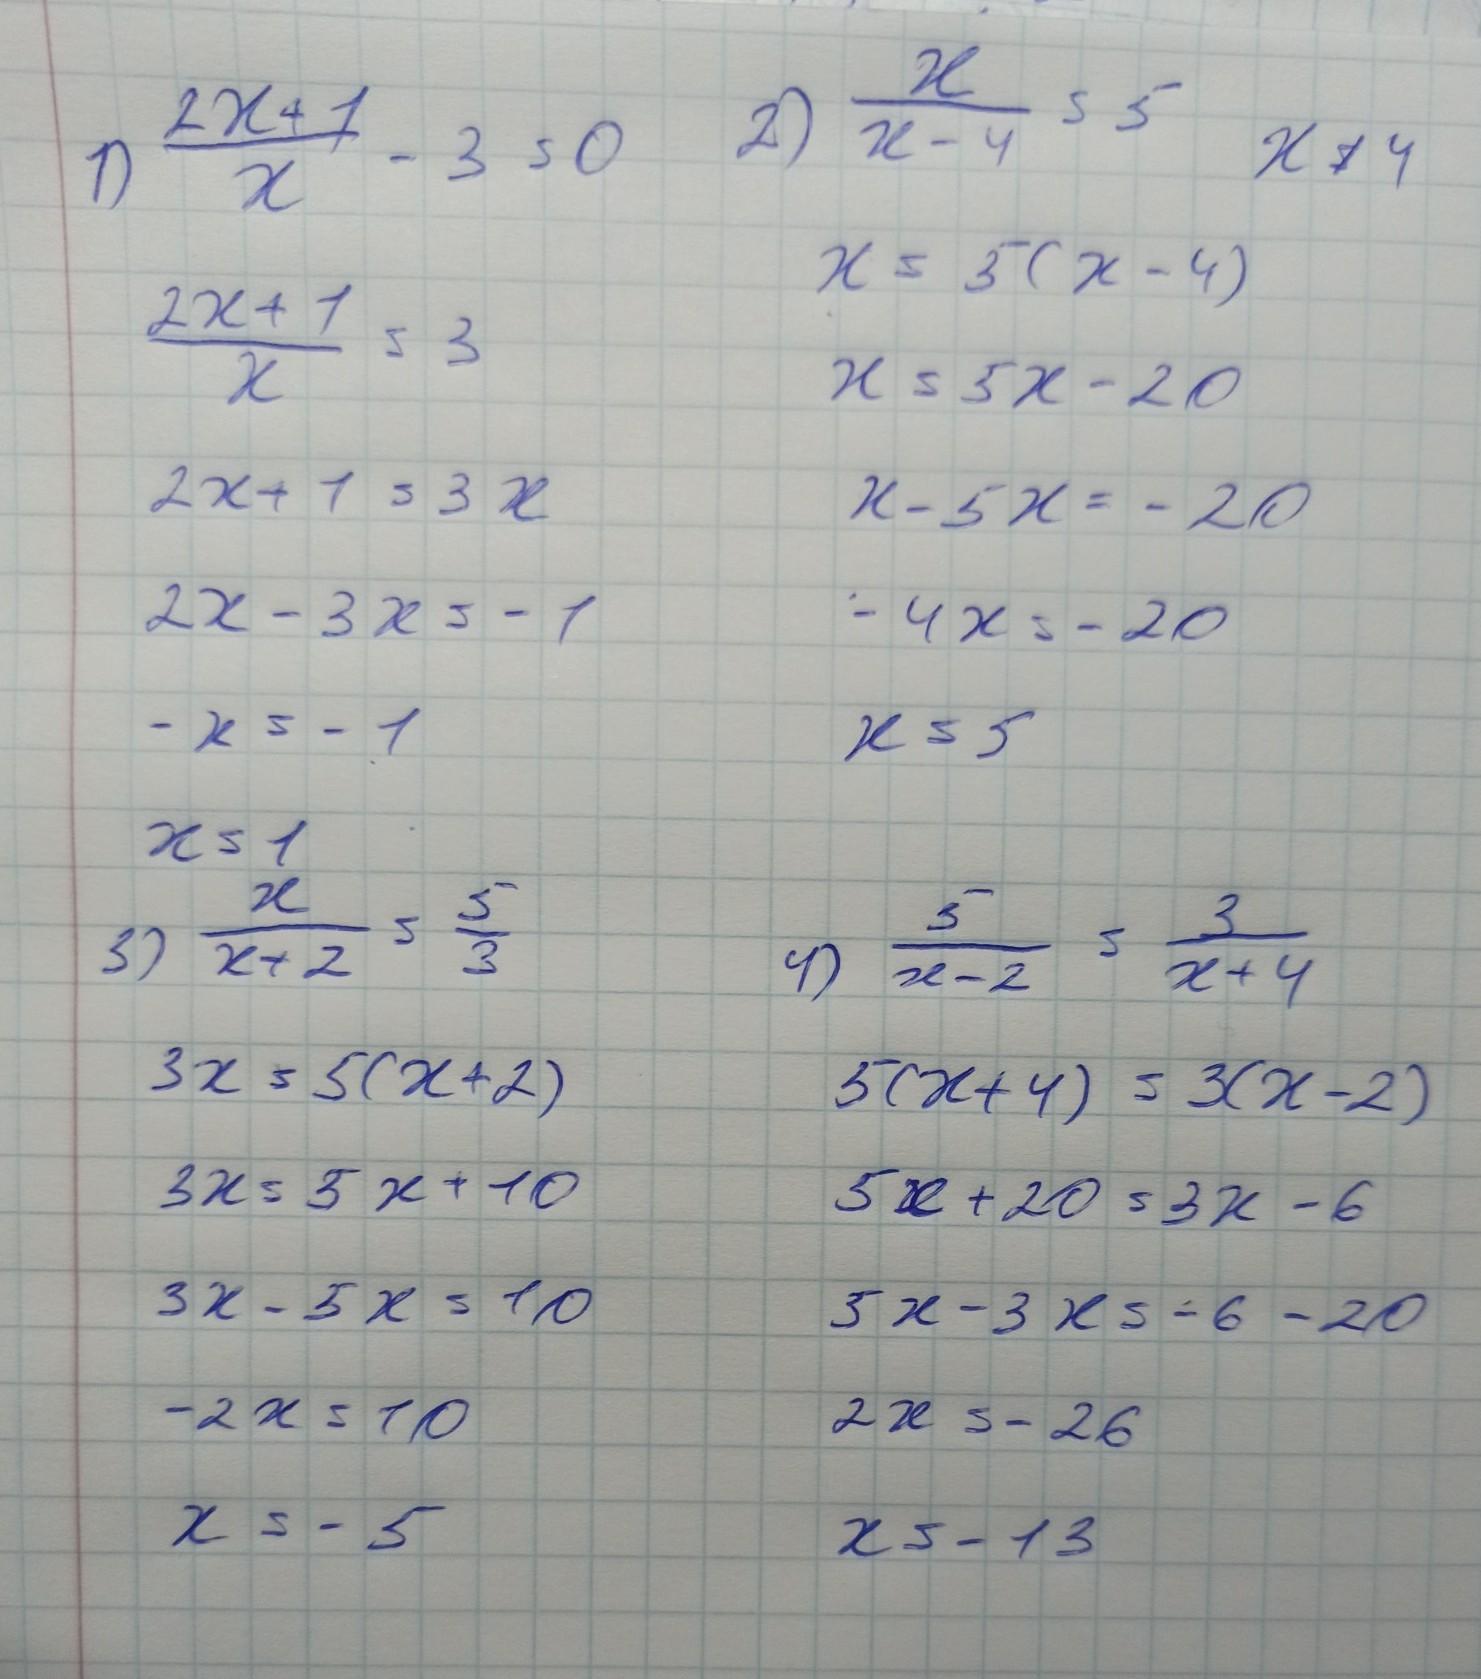 1) (2x+1)/x - 3 = 0
(2x+1)/x = 3
2x+1 = 3x
2x - 3x = -1
-x = -1
x = 1
2) x/(x-4) = 5 x ≠ 4
x = 5(x-4)
x = 5x - 20
x - 5x = -20
-4x = -20
x = 5
3) x/(x+2) = 5/3
3x = 5(x+2)
3x = 5x + 10
3x - 5x = 10
-2x = 10
x = -5
4) 5/(x-2) = 3/(x+4)
5(x+4) = 3(x-2)
5x + 20 = 3x - 6
5x - 3x = -6 - 20
2x = -26
x = -13